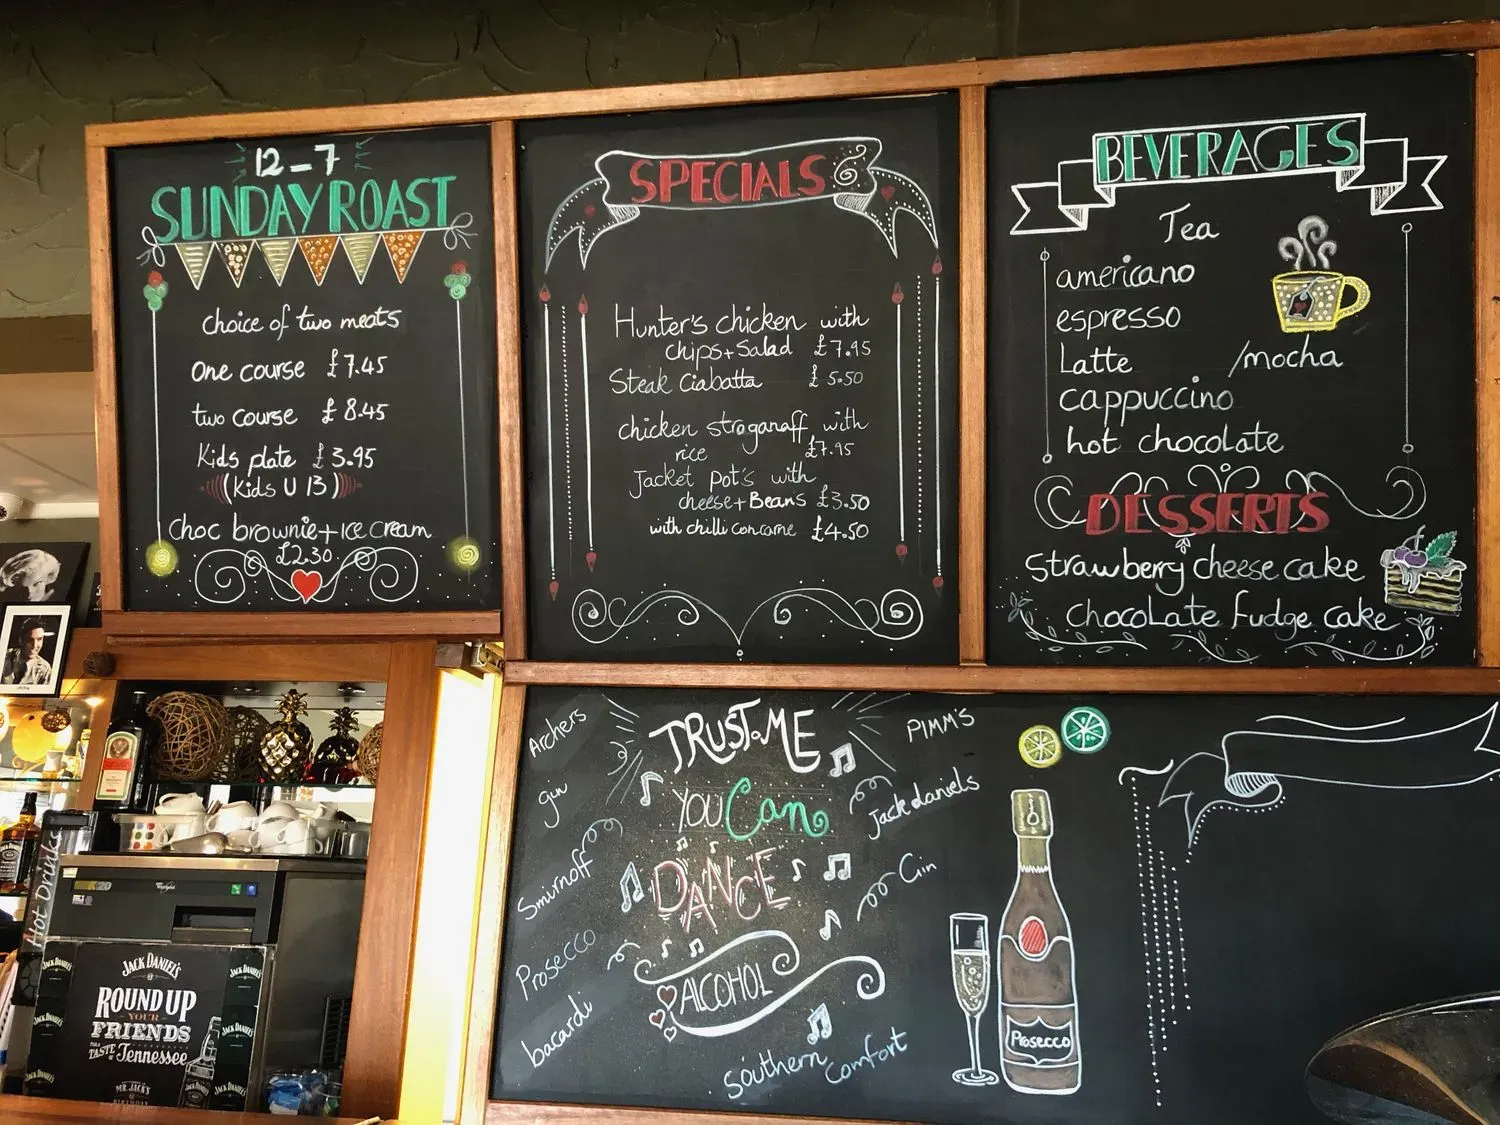 12-7
SUNDAY ROAST
choice of two meats
One course £7.45
two course £8.45
Kids plate £3.95
(Kids U 13)
Choc brownie+Ice cream
£2.30
SPECIALS
Hunter's chicken with
chips+Salad £7.95
Steak Ciabatta £5.50
chicken stroganaff with
rice £7.95
Jacket Pot's with
cheese+Beans £3.50
with chilli con carne £4.50
BEVERAGES
Tea
americano
espresso
Latte /mocha
cappuccino
hot chocolate
DESSERTS
Strawberry cheese cake
chocolate fudge cake
TRUST ME
YOU Can
DANCE
ALCOHOL
Archers
gin
Smirnoff
Prosecco
bacardi
PIMM'S
Jack daniels
Gin
Southern Comfort
Prosecco
Hot Drinks
JACK DANIEL'S
ROUND UP
YOUR
FRIENDS
FOR A
TASTE OF Tennessee
MR. JACK'S
BIRTHDAY